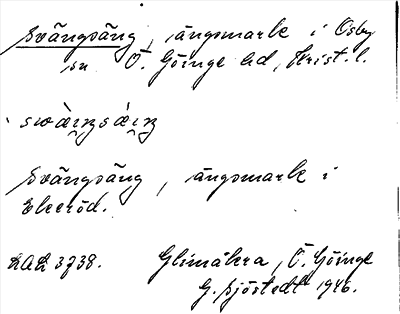 Svängsäng, ängsmark i Osby
sn Ö. Göinge hd, Krist. l.
swàiŋsáiŋ
Svängsäng, ängsmark i
Ekeröd.
LAL 3738. Glimåkra, Ö. Göinge
G. Sjöstedt 1946.